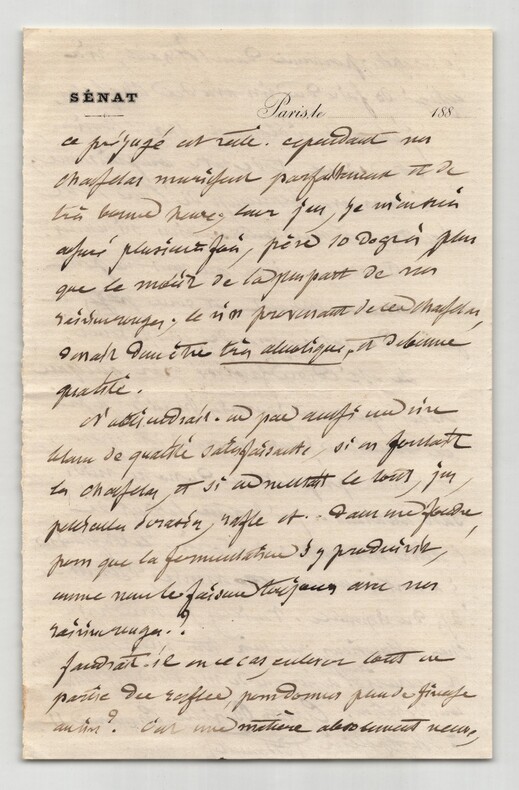 SÉNAT
Paris, le 188
ce préjugé est réel. cependant nos
chasselas murissent parfaitement et de
très bonne heure, leur jus, je m'en suis
assuré plusieurs fois, pèse 10 degrés plus
que le moût de la plupart de nos
raisins rouges. Le vin provenant de ces chasselas,
devait donc être très alcoolique, et de bonne
qualité.
N'obtiendrait-on pas aussi un vin
blanc de qualité satisfaisante, si on foulait
les chasselas, et si on mettait le tout, jus,
pellicules raisin, rafle et .. dans une foudre,
pour que la fermentation s'y produisit,
comme nous le faisons toujours avec nos
raisins rouges.?
faudrait-il en ce cas, enlever tout ou
partie des rafles, pour donner plus de finesse
au vin? C'est une matière absolument neuve,